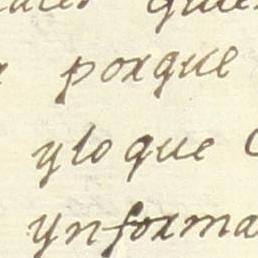 porque
ylo que
ynforma